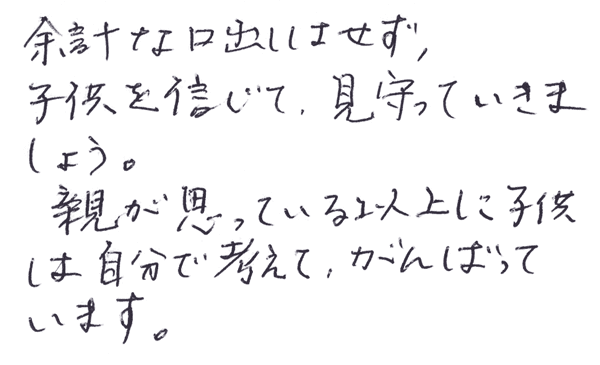 余計な口出しはせず、
子供を信じて、見守っていきま
しょう。
親が思っている以上に子供
は自分で考えて、がんばって
います。